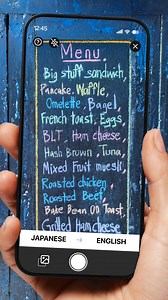 12:45
Menu
Big stuff sandwich,
Pancake, Waffle,
Omelette, Bagel,
French toast, Eggs,
B.L.T. Ham cheese,
Hash Brown, Tuna,
Mixed Fruit muesli,
Roasted chicken,
Roasted Beef,
Bake Bean On Toast,
Grilled Ham cheese
JAPANESE → ENGLISH